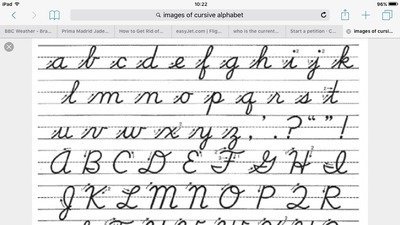 iPad 10:22 96%
images of cursive alphabet
BBC Weather - Bra... Prima Madrid Jade... How to Get Rid of... easyJet.com | Flig... who is the current... Start a petition - C... images of cursi...
a b c d e f g h i j k
l m n o p q r s t
u v w x y z , ' . ? “ ” !
A B C D E F G H I
J K L M N O P Q R